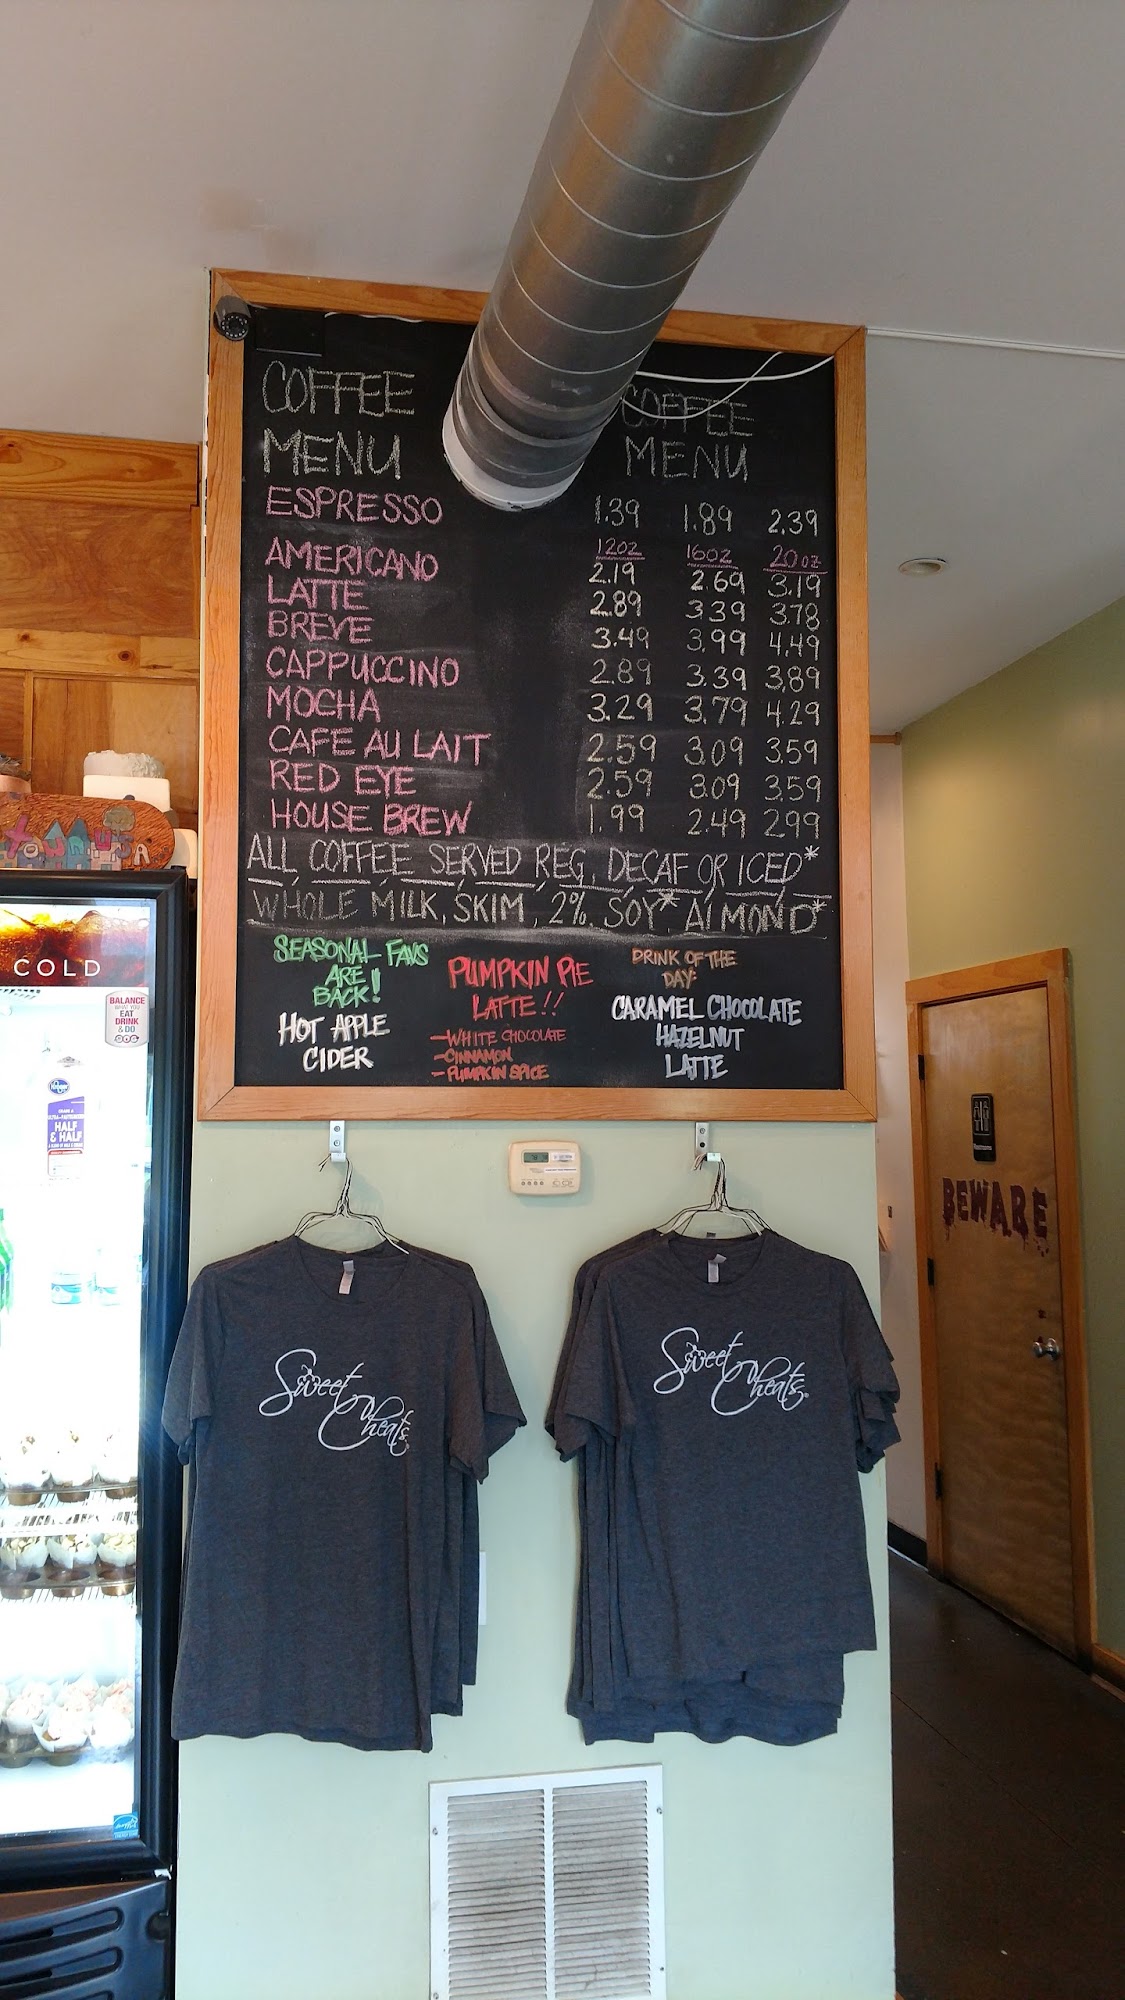 COFFEE COFFEE
MENU MENU
ESPRESSO 1.39 1.89 2.39
12oz 16oz 20oz
AMERICANO 2.19 2.69 3.19
LATTE 2.89 3.39 3.78
BREVE 3.49 3.99 4.49
CAPPUCCINO 2.89 3.39 3.89
MOCHA 3.29 3.79 4.29
CAFE AU LAIT 2.59 3.09 3.59
RED EYE 2.59 3.09 3.59
HOUSE BREW 1.99 2.49 2.99
ALL COFFEE SERVED REG, DECAF OR ICED*
WHOLE MILK, SKIM, 2%, SOY* ALMOND*
SEASONAL FAVS
ARE
BACK!
HOT APPLE
CIDER
PUMPKIN PIE
LATTE!!
-WHITE CHOCOLATE
-CINNAMON
-PUMPKIN SPICE
DRINK OF THE
DAY:
CARAMEL CHOCOLATE
HAZELNUT
LATTE
COLD
BALANCE
WHAT YOU
EAT
DRINK
& DO
HALF
& HALF
Restrooms
BEWARE
Sweet
Cheats
Sweet
Cheats